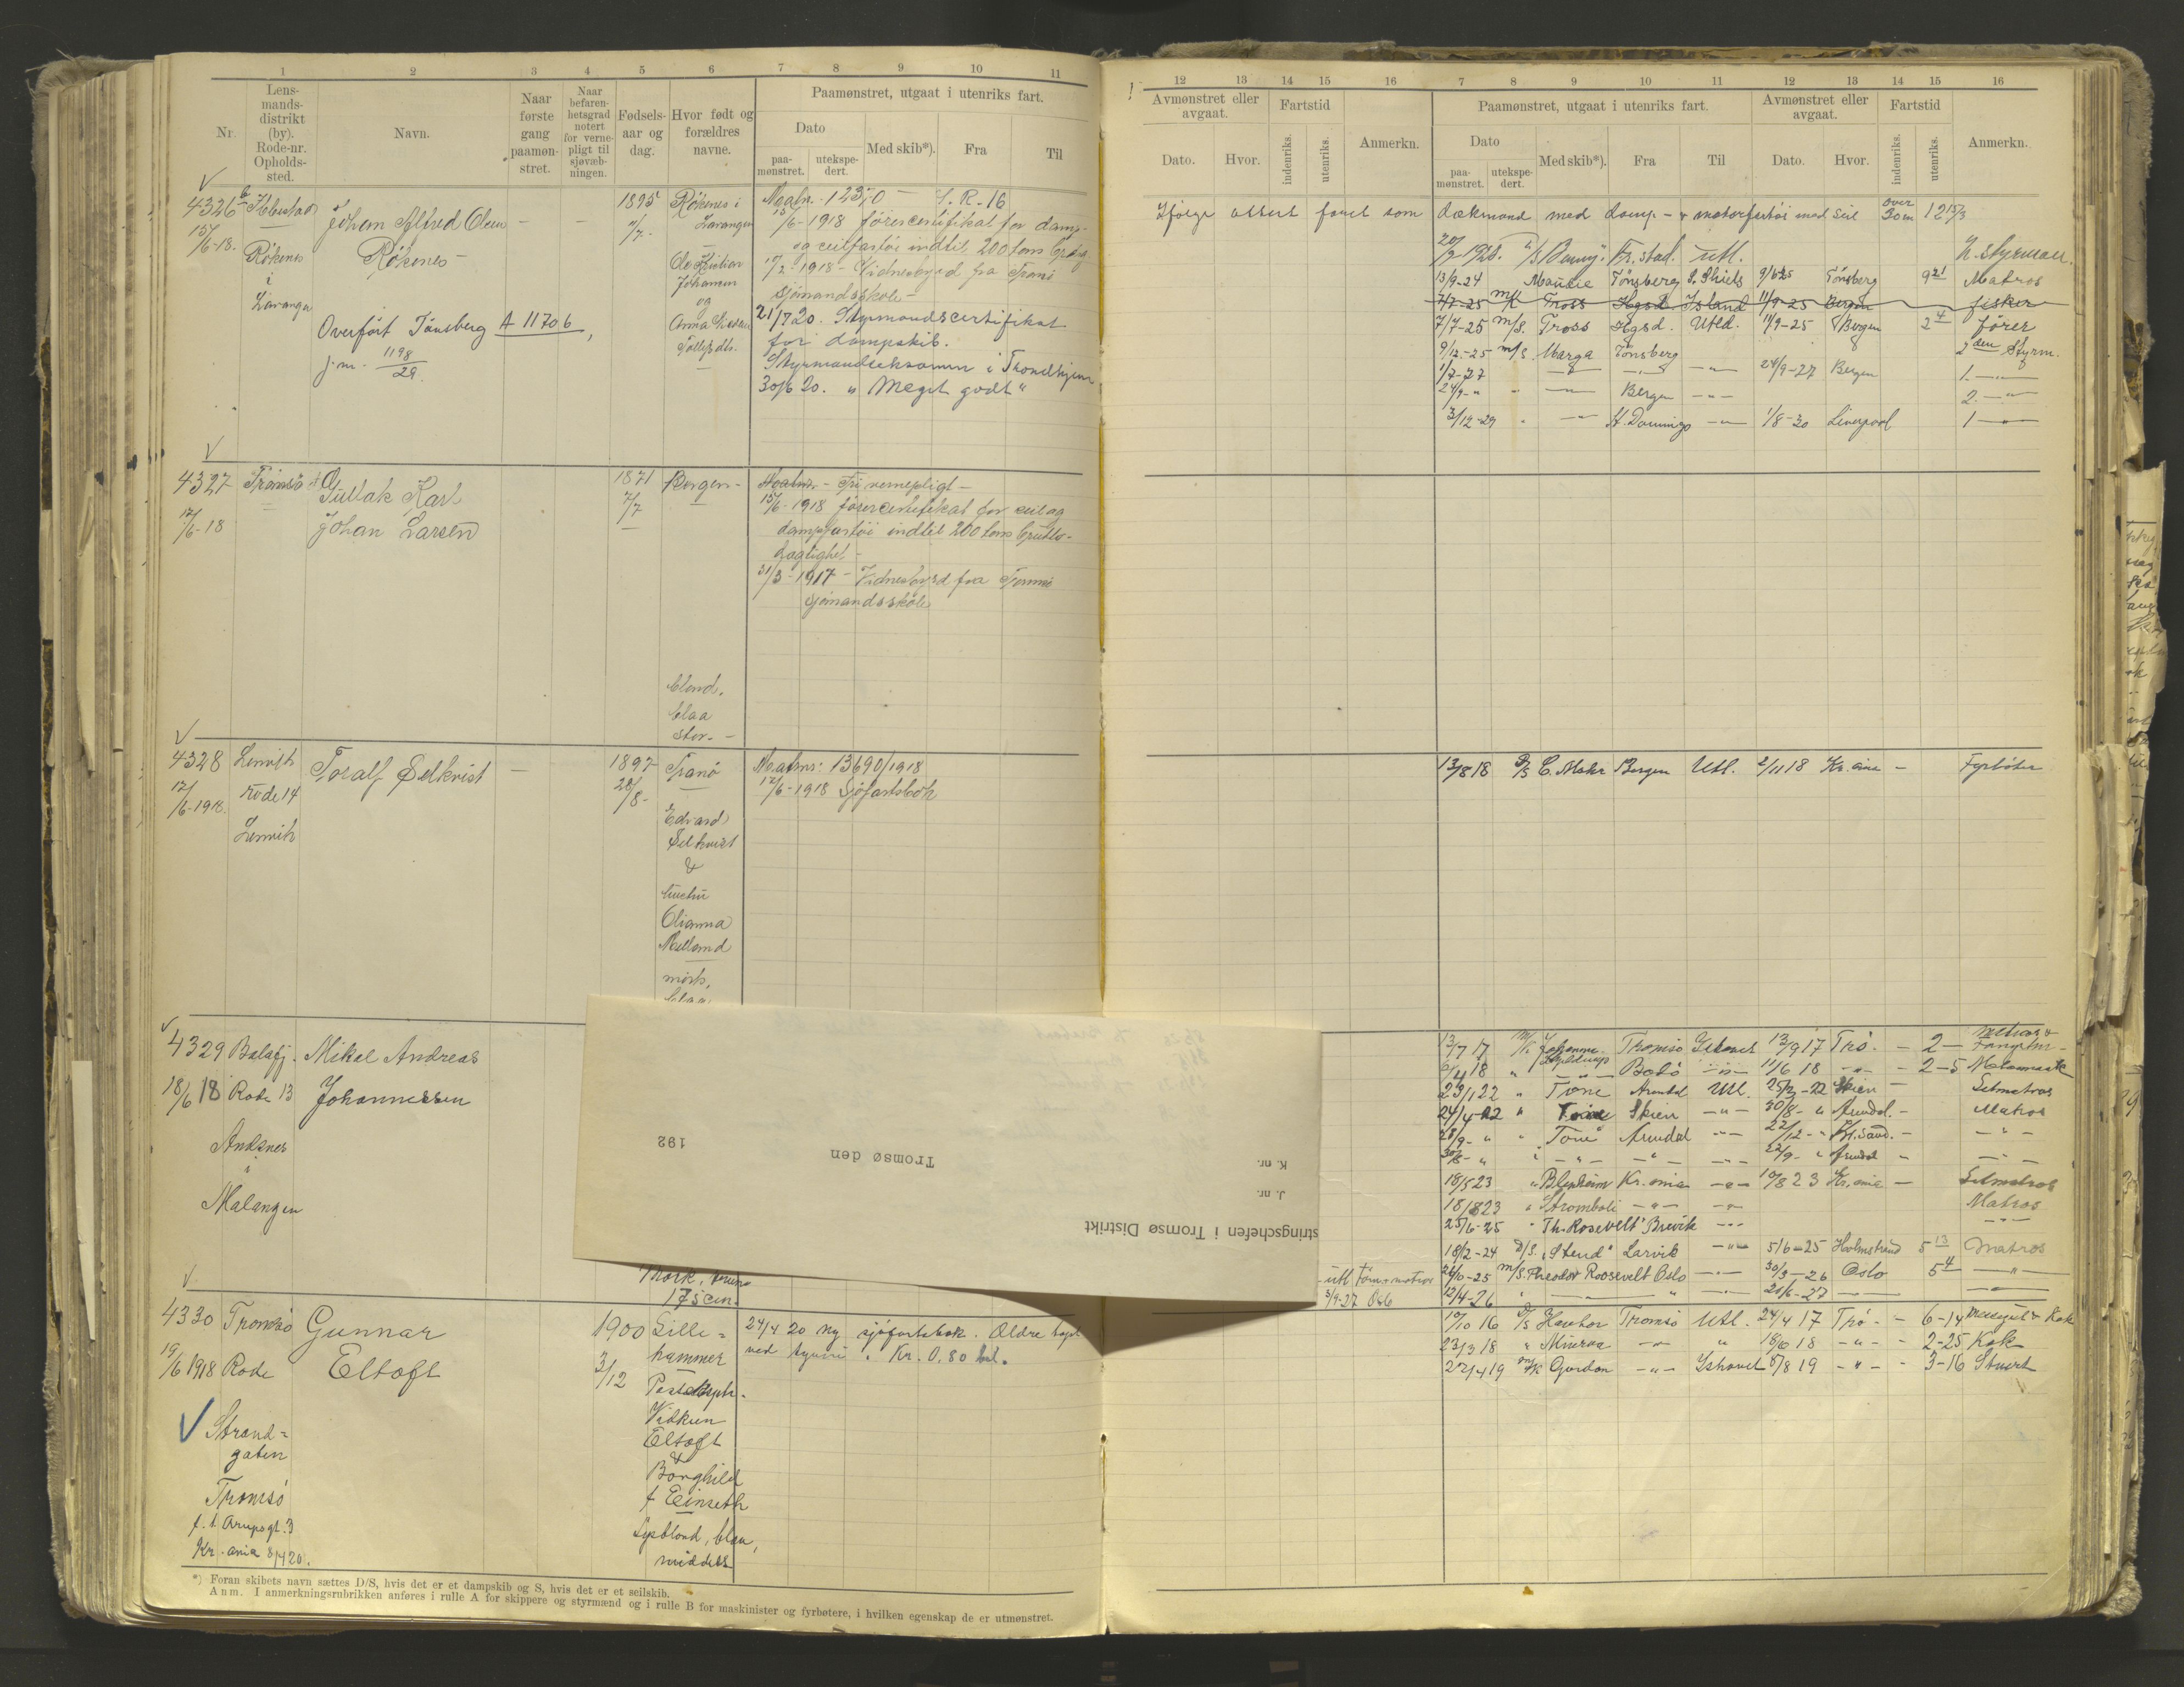 1 2 3 4 5 6 7 8 9 10 11
Nr.
Lens-
mands-
distrikt
(by).
Rode-nr.
Opholds-
sted.
Navn.
Naar
første
gang
paamøn-
stret.
Naar
befaren-
hetsgrad
notert
for verne-
pligt til
sjøvæb-
ningen.
Fødsels-
aar og
dag.
Hvor født og
forældres
navne.
Paamønstret, utgaat i utenriks fart.
Dato
paa-
mønstret.
utekspe-
dert.
Med skib*).
Fra
Til
4326
15/6-18.
Ibbestad
Rökenes
i
Johan Alfred Olsen
Rökenes
Overført Tönsberg A 11706
j.nr. 1198/29
1895
Rökenes i
Ole Kristian
Johansen
og
Anna
15/6-1918 förercertifikat for damp-
og seilfartöi indtil 200 tons
1918 - Vidnesbyrd fra Tranö
sjömandsskole -
21/7 20. Styrmandscertifikat
for dampskib.
Styrmandseksamen i Trondhjem
30/6 20. "Meget godt"
4327
17/6-18
Tromsö
Gullak Karl
Johan Larsen
1871
7/7
Bergen -
- Fri vernepligt -
15/6-1918 förercertifikat for seil og
dampfartöi indtil 200 tons brutto-
dragtighet -
31/3-1917 - Vidnesbyrd fra Tromsö
Sjömandsskole
blond,
blaa
stor. -
4328
17/6-1918.
Lenvik
rode 14
Lenvik
Toralf Selkvist
1897
28/8-
Tranö
Edvard
Selkvist
&
hustru
Olianna
mörk,
blaa
13690/1918
17/6-1918 Sjöfartsbok
4329
18/6 18
Balsfj.
Rode 13
Andsnes
i
Malangen
Mikal Andreas
Johannessen
Mörk, brune
175 cm.
192
Tromsø den
K. nr.
J. nr.
stringschefen i Tromsø Distrikt
4330
19/6 1918
Tromsö
Rode
Strand-
gaten
Tromsö
f. t. Arupsgt. 3
Kr.ania 8/4 20.
Gunnar
Eltoft
1900
3/12
Lille-
hammer
Vidkun
Eltoft
&
Borghild
f. Einseth
Lysblond, blaa,
middels
24/4 20 ny sjöfartsbok. Ældre tapt
ved tyveri. Kr. 0,80 bet.
*) Foran skibets navn sættes D/S, hvis det er et dampskib og S, hvis det er et seilskib.
Anm. I anmerkningsrubrikken anføres i rulle A for skippere og styrmænd og i rulle B for maskinister og fyrbøtere, i hvilken egenskap de er utmønstret.
12 13 14 15 16 7 8 9 10 11 12 13 14 15 16
Avmønstret eller
avgaat.
Dato. Hvor.
Fartstid
indenriks. utenriks.
Anmerkn.
Paamønstret, utgaat i utenriks fart.
Dato
paa-
mønstret.
utekspe-
dert.
Med skib*). Fra Til
Avmønstret eller
avgaat.
Dato. Hvor.
Fartstid
indenriks. utenriks.
Anmerkn.
Ifølge attest faret som dækmand med damp- & motorfartöi med seil over 30 m 12 15/3
Fr.stad. Utl. 2. styrman.
13/9-24 Tönsberg S. Shiels 9/6 25 Tönsberg 9 21 Matros
7/7-25 M/K Tross Hgsd. Island 11/9-25 Bergen fisker
7/7-25 M/S. Tross Hgsd. Utld. 11/9-25 Bergen 2 4 förer
9/12-25 M/S. Marga Tönsberg 2den Styrm.
1/7-27 -"- -"- -"- 24/9-27 Bergen 1. -"-
24/9-" " -"- Bergen -"- 2. -"-
3/12-29 " -"- St. Domingo -"- 1/8-30 Liverpool 1 -"-
13/8 18 D/S C. Mohr Bergen Utl. 2/11 18 Kr.ania - Fyrböter
13/7 17 Tromsö Ishavet 13/9 17 Trö. - 2 - Matros &
18 " -"- Bodö -"- 11/6 18 -"- - 2-5
23/1 22 " Töne Arendal Utl. 25/3-22 Skien - Letmatros
24/4-22 " Töne Skien -"- 30/8-" Arendal. - Matros
28/9-" " "Töne" Arendal -"- 22/12-" Kr.sand. - -"-
30/8-" " -"- -"- -"- 22/9-" Arendal " -"-
18/5 23 " Blenheim Kr.ania -"- 10/8 23 Kr.ania - Letmatros
18/8 23 " Stromboli -"- -"- Matros
25/6-25 " "Th. Rosevelt" Brevik -"- -"-
18/2-24 D/S. "Stend" Larvik -"- 5/6-25 Holmstrand 5 13 Matros
utl. Töm.matros 26/10-25 M/S. Theodor Roosevelt Oslo -"- 30/3-26 Oslo 5 4 -"-
3/9-27 Oslo 12/4-26 " -"- " -"- 20/6-27 -"- -"-
19/10 16 D/S Tromsö Utl. 24/4 17 Trö. - 6-14 & Kok
23/3 18 " Minerva -"- " 18/6 18 -"- - 2-25 Kok
22/4 19 M/K Gordon -"- Ishavet 8/8 19 -"- - 3-16 Stuert